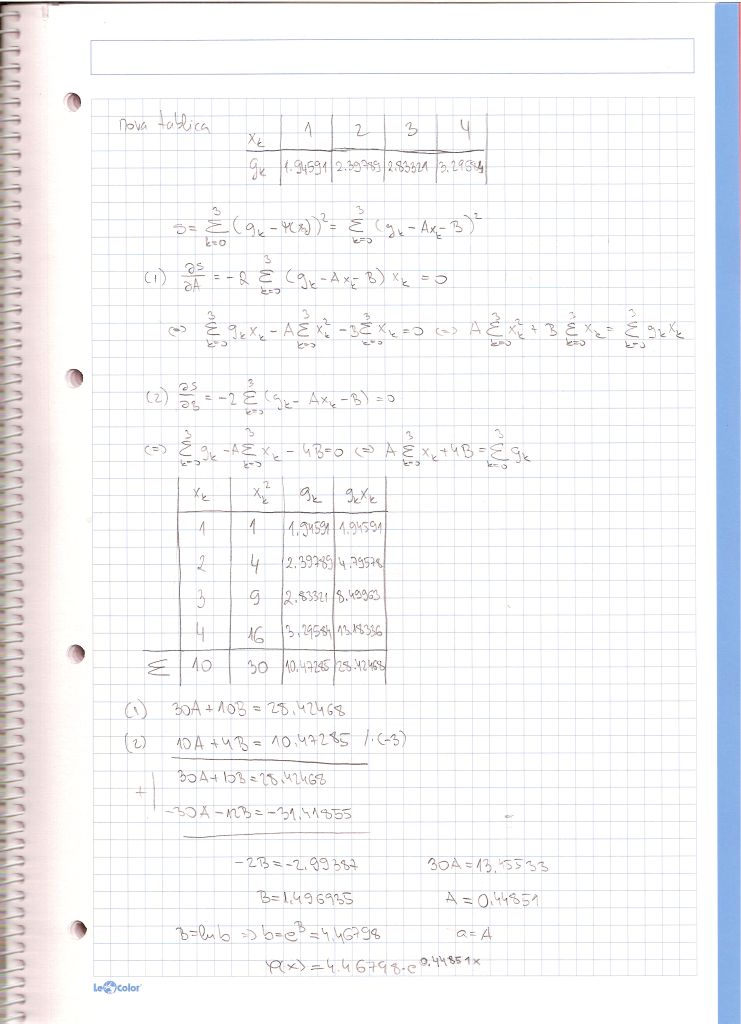 nova tablica
x_k | 1 | 2 | 3 | 4
g_k | 1.94591 | 2.39789 | 2.83321 | 3.29584
S = Σ_{k=0}^{3} (g_k - φ(x_k))² = Σ_{k=0}^{3} (g_k - Ax_k - B)²
(1) ∂S/∂A = -2 Σ_{k=0}^{3} (g_k - Ax_k - B) x_k = 0
⇔ Σ_{k=0}^{3} g_k x_k - A Σ_{k=0}^{3} x_k² - B Σ_{k=0}^{3} x_k = 0 ⇔ A Σ_{k=0}^{3} x_k² + B Σ_{k=0}^{3} x_k = Σ_{k=0}^{3} g_k x_k
(2) ∂S/∂B = -2 Σ_{k=0}^{3} (g_k - Ax_k - B) = 0
⇔ Σ_{k=0}^{3} g_k - A Σ_{k=0}^{3} x_k - 4B = 0 ⇔ A Σ_{k=0}^{3} x_k + 4B = Σ_{k=0}^{3} g_k
x_k | x_k² | g_k | g_k x_k
1 | 1 | 1.94591 | 1.94591
2 | 4 | 2.39789 | 4.79578
3 | 9 | 2.83321 | 8.49963
4 | 16 | 3.29584 | 13.18336
Σ | 10 | 30 | 10.47285 | 28.42468
(1) 30A + 10B = 28.42468
(2) 10A + 4B = 10.47285 /·(-3)
30A + 10B = 28.42468
+
-30A - 12B = -31.41855
-2B = -2.99387 30A = 13.45533
B = 1.496935 A = 0.44851
B = ln b ⇒ b = e^B = 4.46798 a = A
φ(x) = 4.46798 · e^{0.44851x}
LeColor